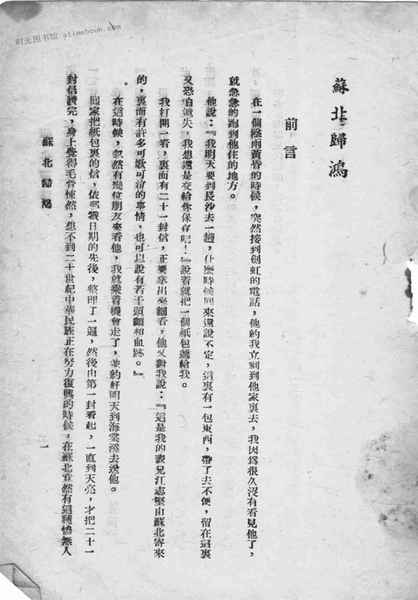 时光图书馆
蘇北歸鴻
前言
在一個陰雨黃昏的時候，突然接到創虹的電話，他約我立刻到他家裏去，我因爲很久沒有看見他了，
就急急的跑到他住的地方。
他說：『我明天要到長沙去一趟，什麼時候回來還說不定，這裏有一包東西，帶了去不便，留在這裏
又恐怕遺失，我想還是交給你保存吧！』說着就把一個紙包遞給我。
我打開一看，裏面有二十一封信，正要拿出來翻看，他又對我說：『這是我的表兄江志堅由蘇北寄來
的，裏面有許多可歌可泣的事情，也可以說有若干頭顱和血跡。』
在這時候，忽然有幾位朋友來看他，我就乘着機會走了，並約好明天到海棠溪去送他。
回家把紙包裏的信，依照日期的先後，整理了一遍，然後由第一封看起，一直到天亮，才把二十一
封信讀完，身上覺得毛骨悚然，想不到二十世紀中華民族正在努力復興的時候，在蘇北竟然有這種慘無人
蘇北歸鴻
一